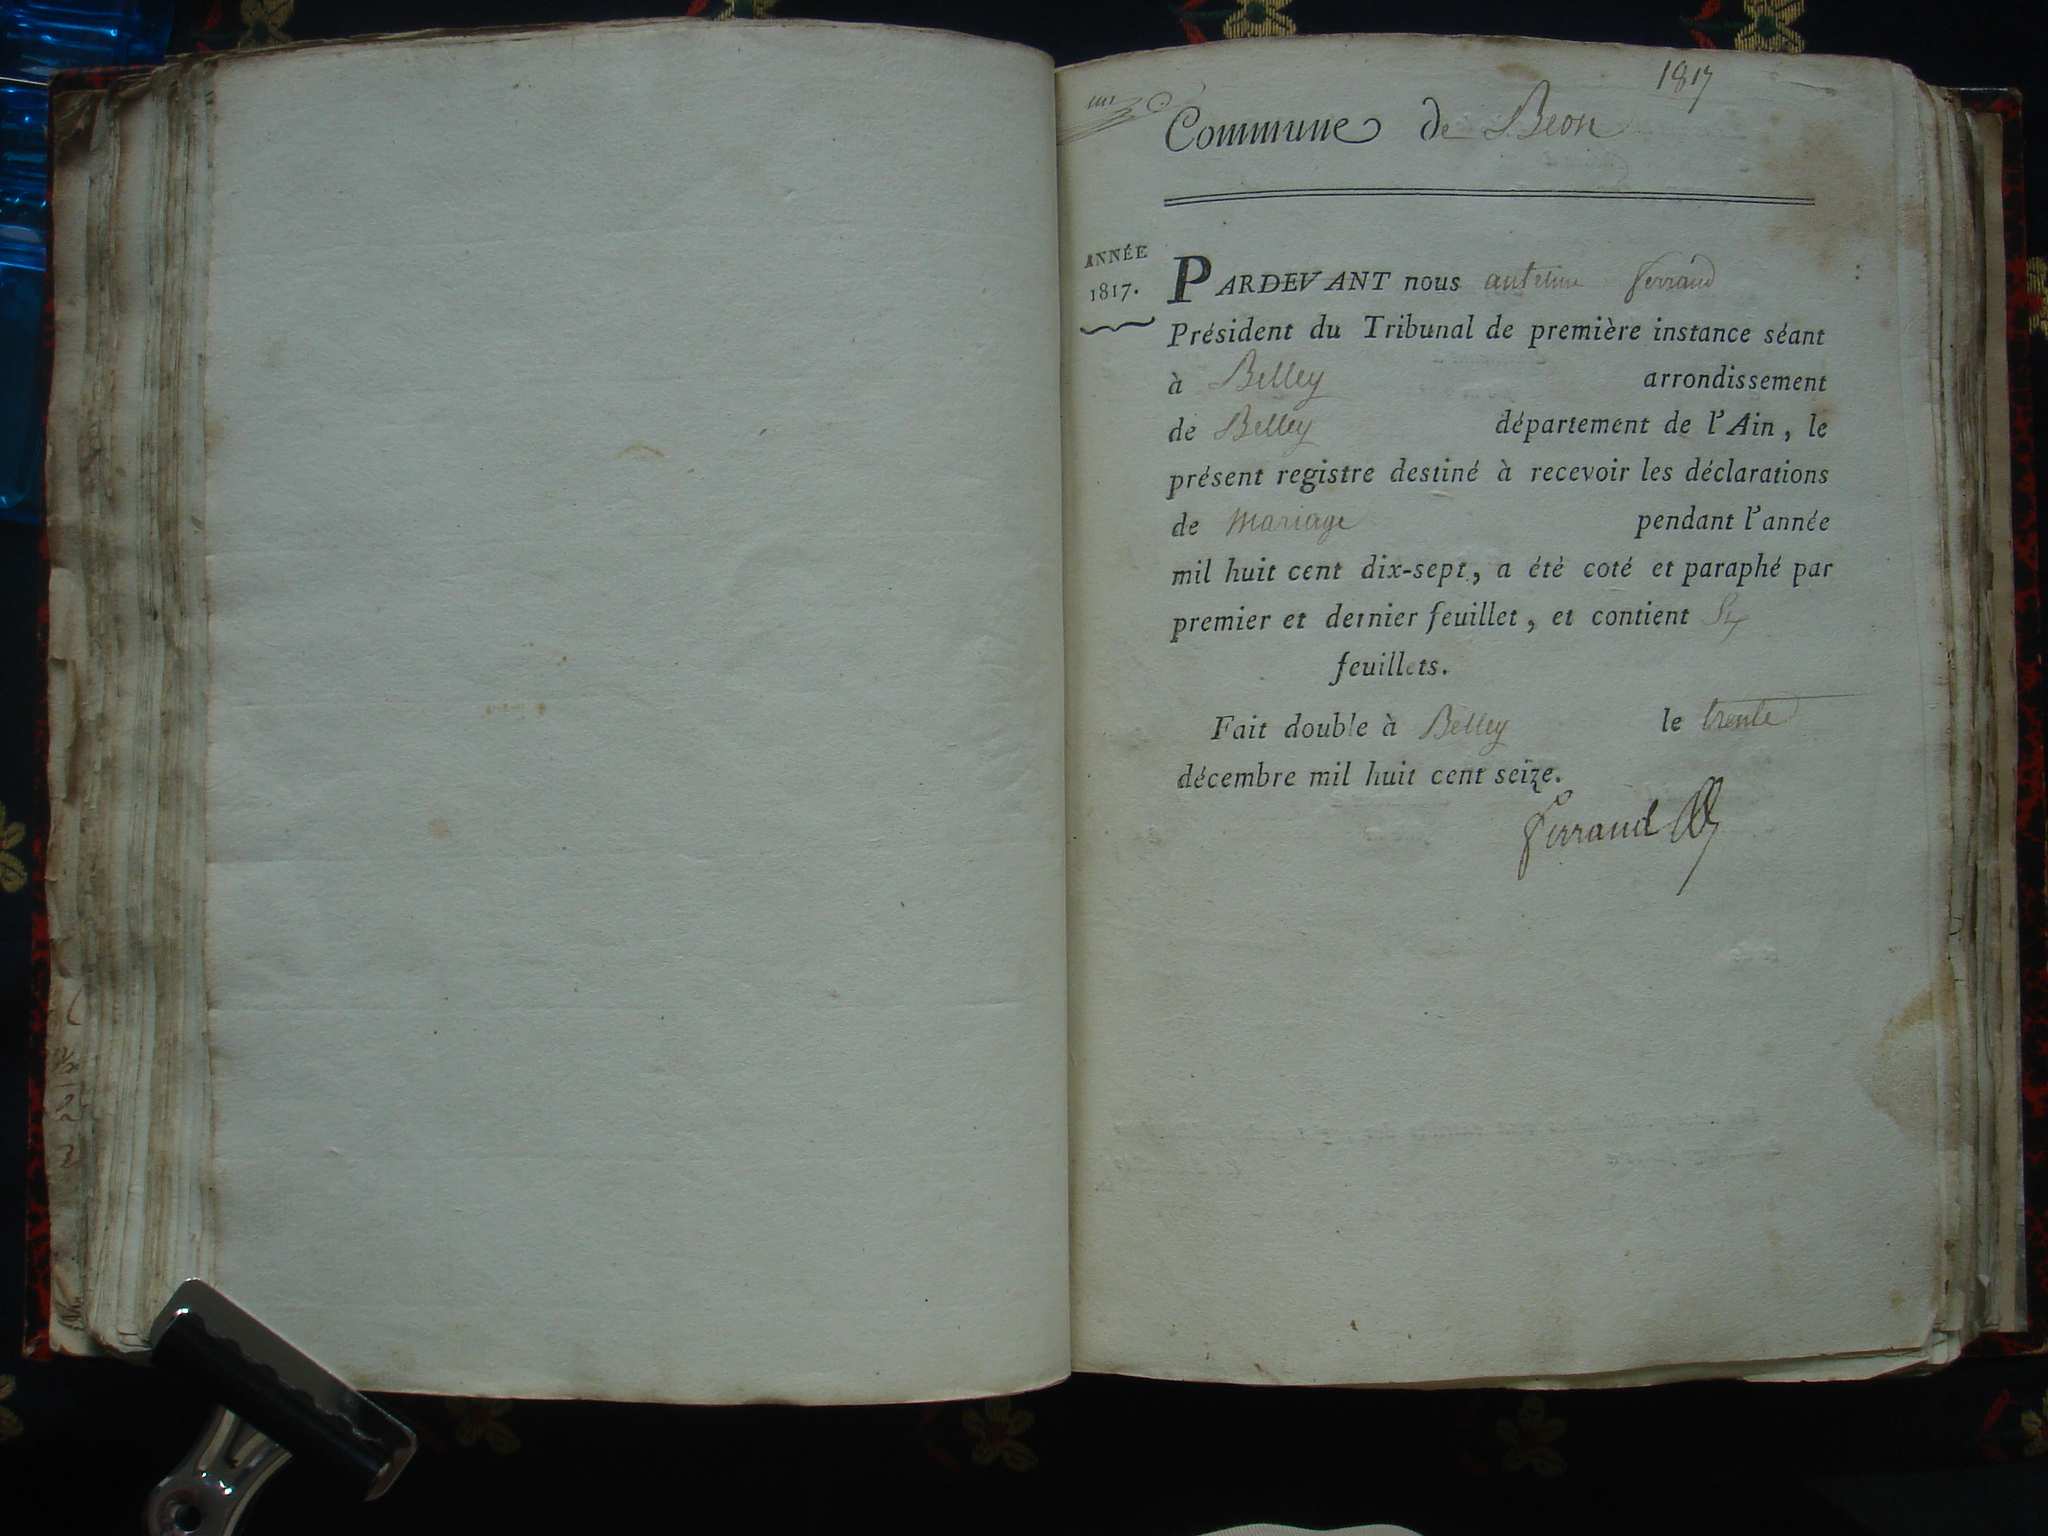 1817
un
Commune de Beon
ANNÉE
1817.
PARDEVANT nous antelme ferrand
Président du Tribunal de première instance séant
à Belley arrondissement
de Belley département de l'Ain, le
présent registre destiné à recevoir les déclarations
de mariage pendant l'année
mil huit cent dix-sept, a été coté et paraphé par
premier et dernier feuillet, et contient Six
feuillets.
Fait double à Belley le trente
décembre mil huit cent seize.
ferrand